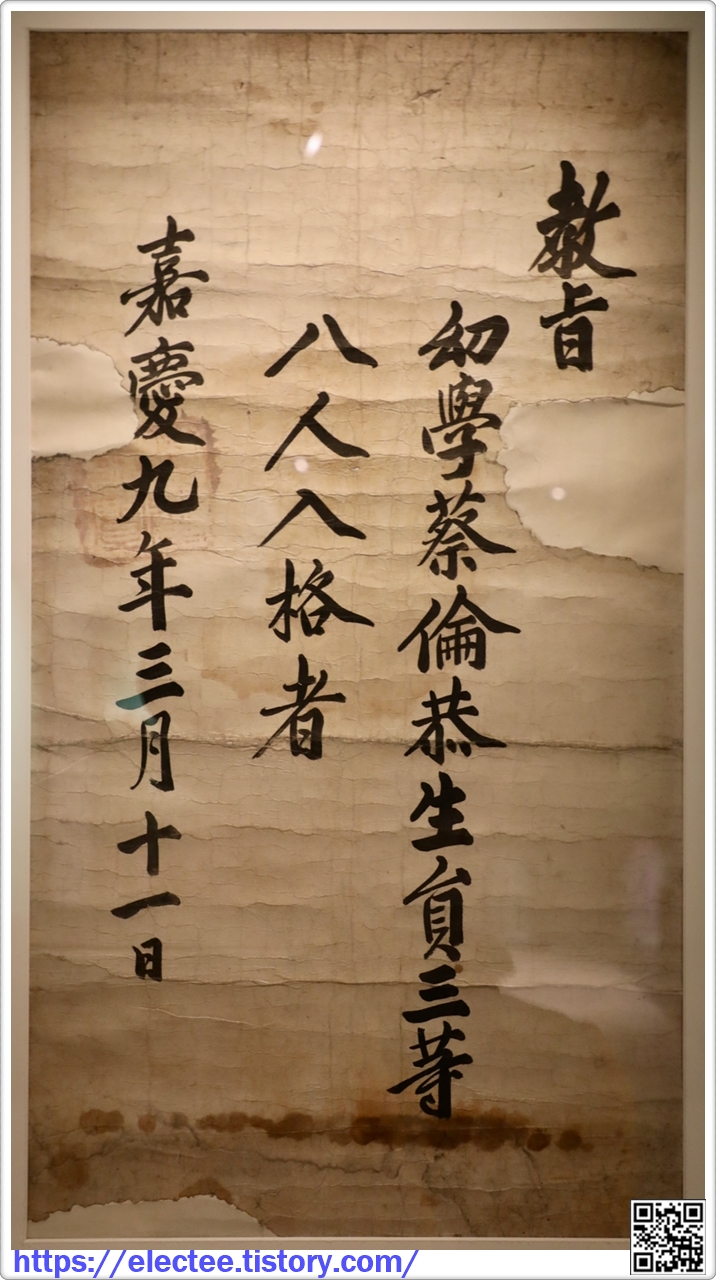 敎旨
幼學蔡倫恭生員三等
八人入格者
嘉慶九年三月十一日
https://electee.tistory.com/